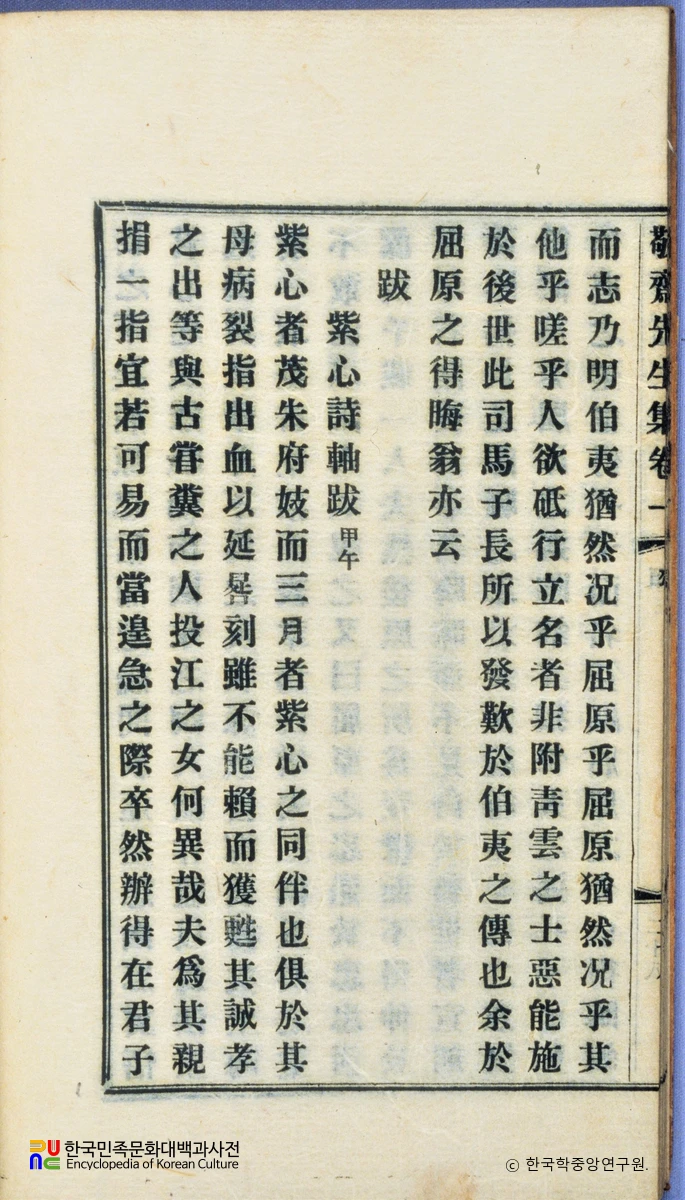 敬齋先生集卷一
而志乃明伯夷猶然况乎屈原乎屈原猶然况乎其
他乎嗟乎人欲砥行立名者非附靑雲之士惡能施
於後世此司馬子長所以發歎於伯夷之傳也余於
屈原之得晦翁亦云
跋
紫心詩軸跋 甲午
紫心者茂朱府妓而三月者紫心之同伴也俱於其
母病裂指出血以延晷刻雖不能賴而獲甦其誠孝
之出等與古甞糞之人投江之女何異哉夫爲其親
捐一指宜若可易而當遑急之際卒然辦得在君子
한국민족문화대백과사전
Encyclopedia of Korean Culture
© 한국학중앙연구원.